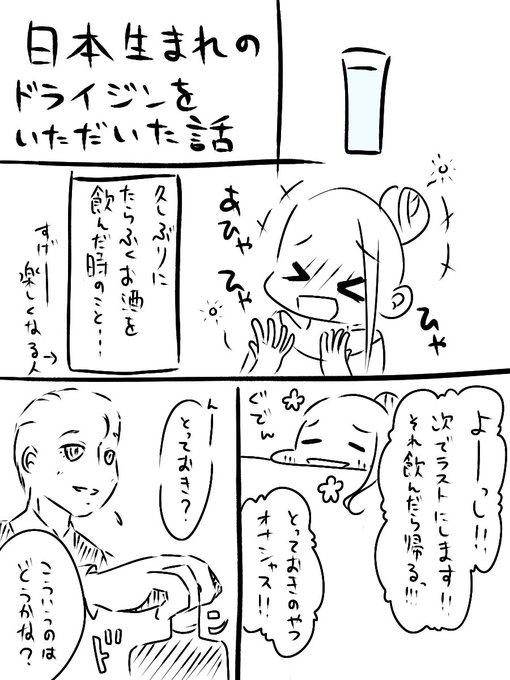 日本生まれの
ドライジンを
いただいた話
久しぶりに
たらふくお酒を
飲んだ時のこと…
すげーー
楽しくなる人→
あひゃ
ひゃ
ひゃ
よーーっし!!
次でラストにします!!
それ飲んだら帰るっ!!!
ぐでん
とっておきのやつ
オナシャス!!
んーー
とっておき?
こういうのは
どうかな?
ドン